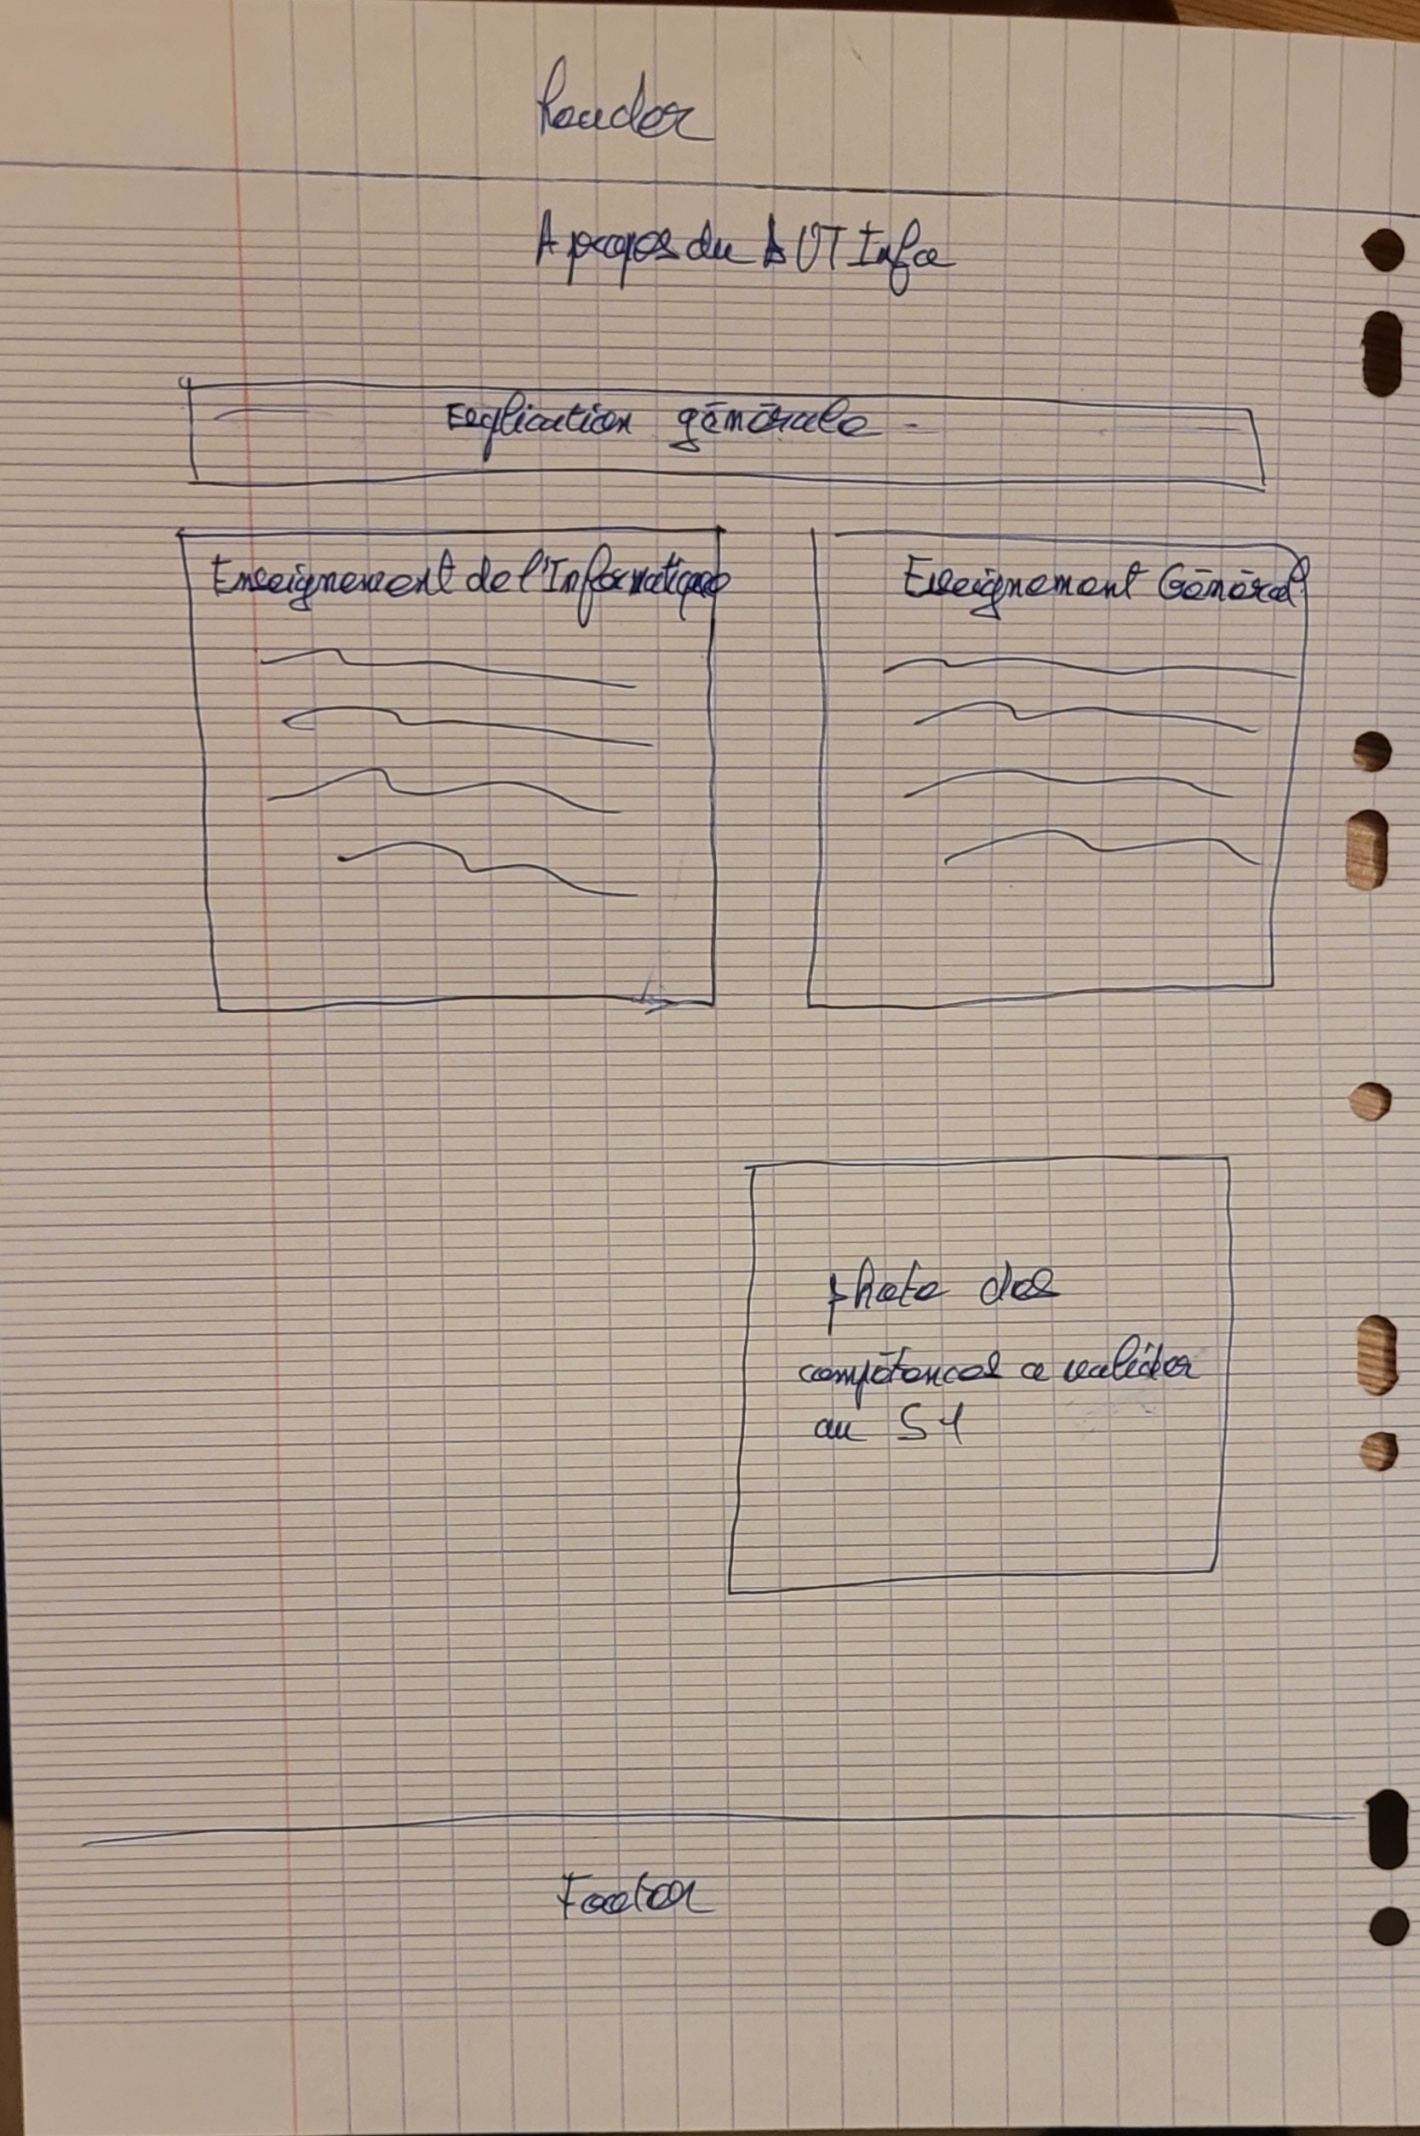 header
A propos du BUT Info
Explication générale
Enseignement de l'Informatique
Enseignement Général
photo des
compétences a valider
au S1
Footer